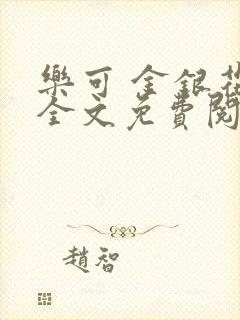 樂可 金銀花
全文免費閱
趙智